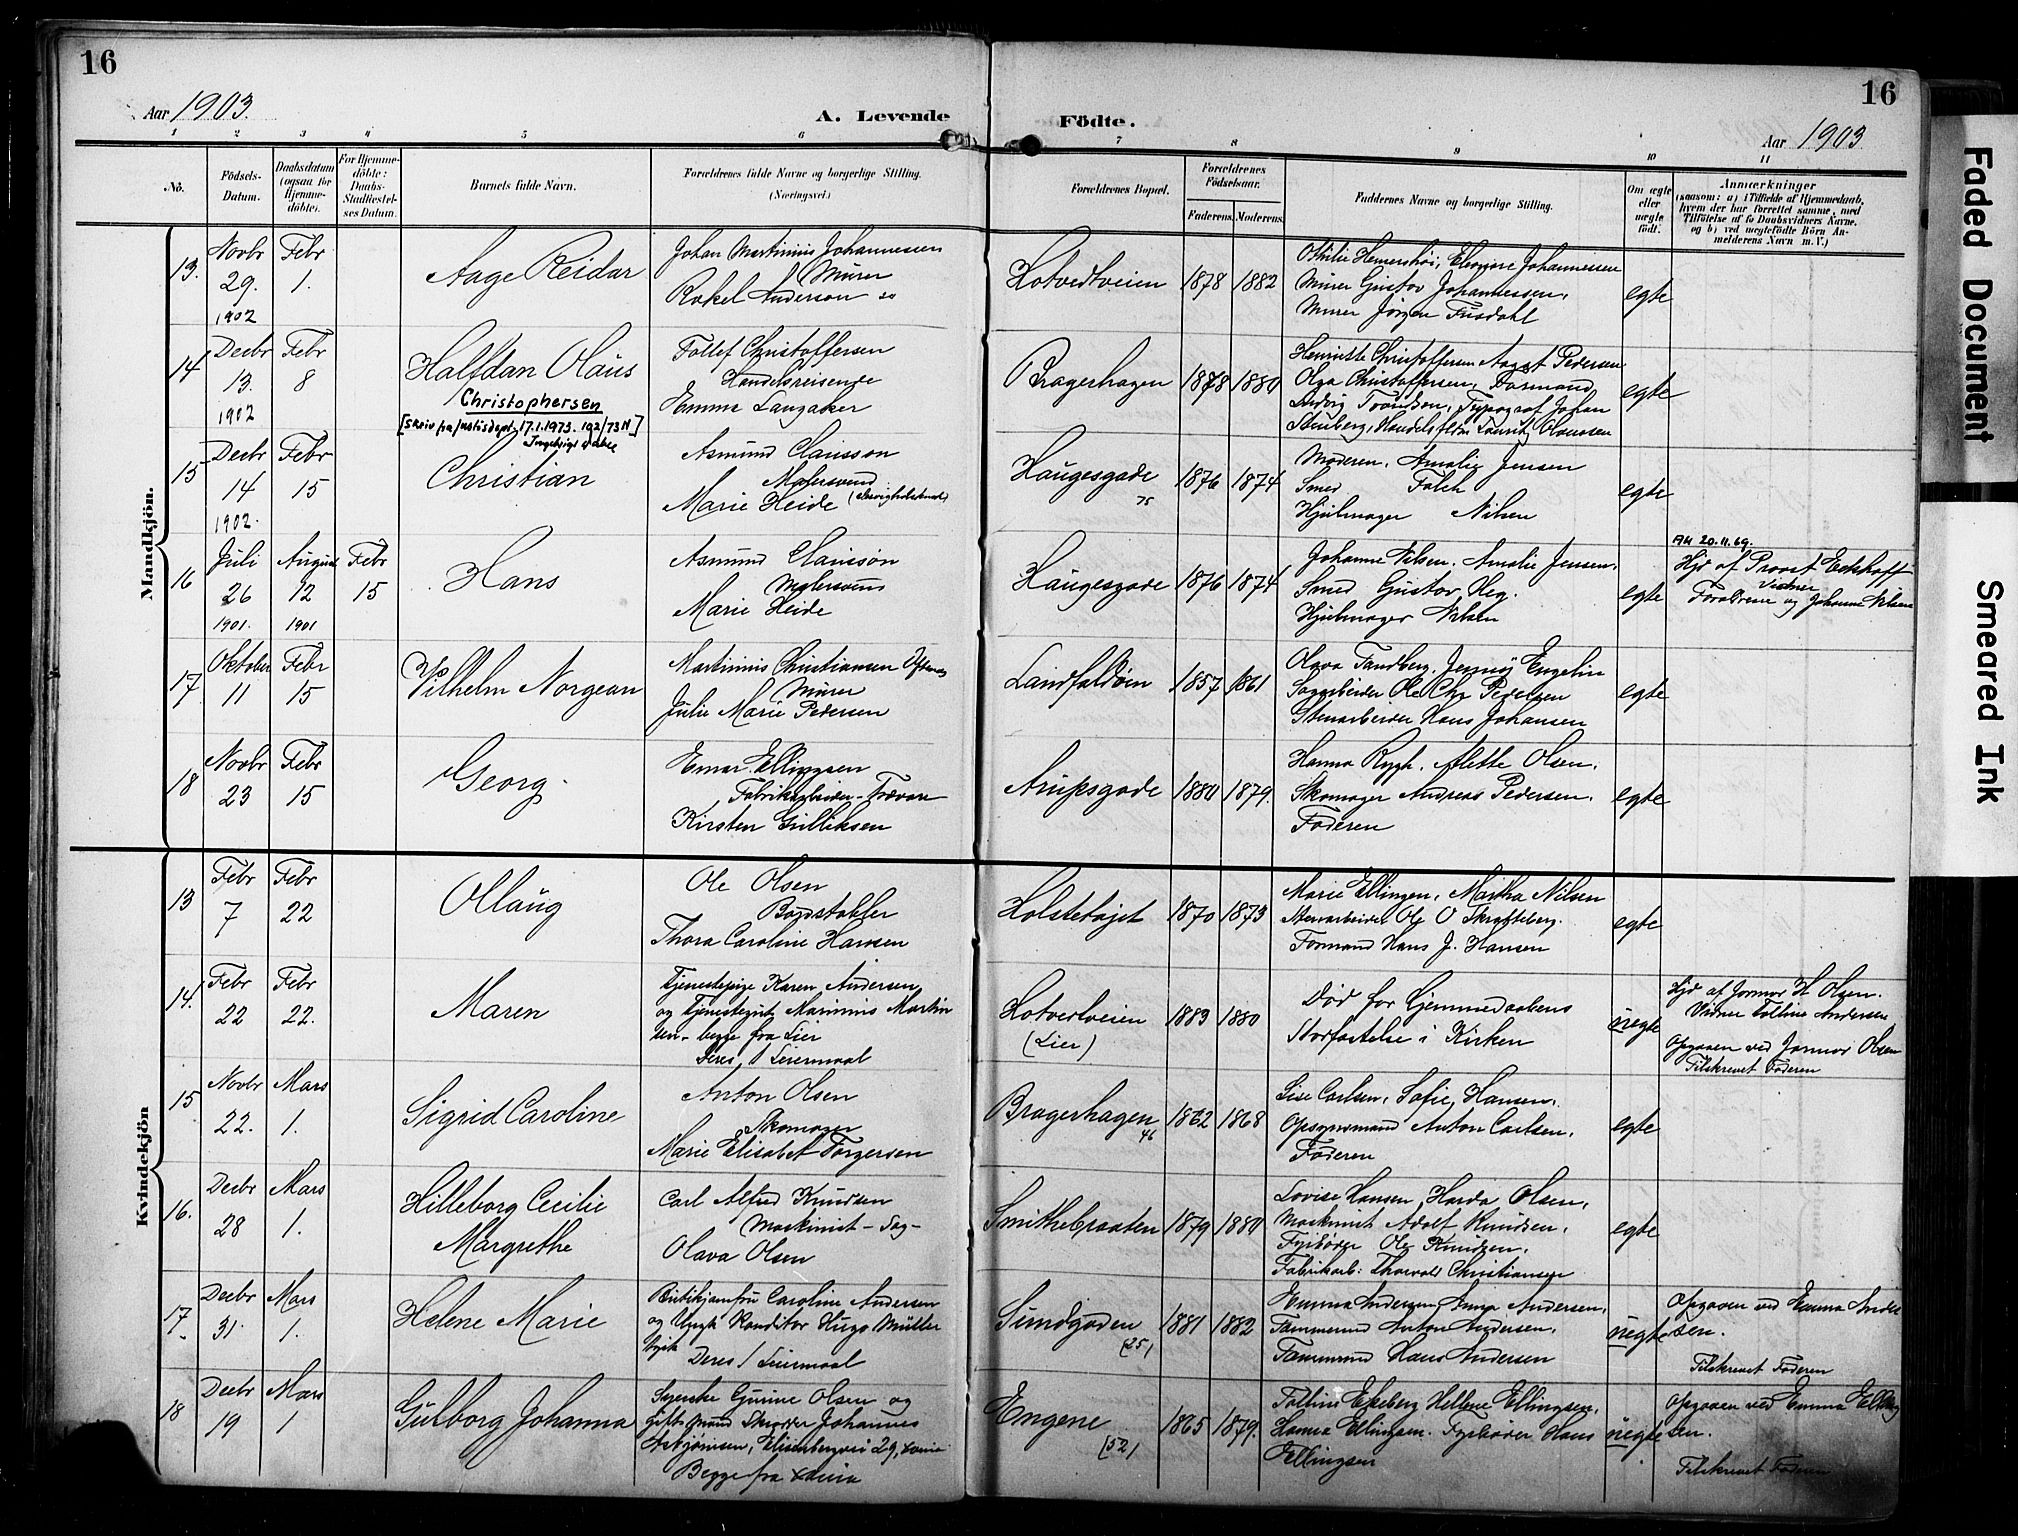 16
16
Aar 1903.
A. Levende
Födte.
Aar 1903
1 2 3 4 5 6 7 8 9 10 11
No.
Födsels-
Datum.
Daabsdatum
(ogsaa for
Hjemme-
döbte).
For Hjemme-
döbte:
Daabs-
Stadfæstel-
ses Datum.
Barnets fulde Navn.
Forældrenes fulde Navne og borgerlige Stilling.
(Næringsvei.)
Forældrenes Bopæl.
Forældrenes
Födselsaar.
Faderens.
Moderens.
Faddernes Navne og borgerlige Stilling.
Om ægte
eller
uægte
født.
Anmærkninger
(saasom: a) i Tilfælde af Hjemmedaab,
hvem der har forrettet samme, med
Tilföielse af to Daabsvidners Navne.
og b) ved uægtefödte Börn An-
melderens Navn m. V.)
Mandkjön.
13.
Novbr
29.
1902
Febr
1.
Aage Reidar
Johan Martinius Johannessen
Murer
Rakel Anderson
Hotvedtveien
1878
1882
Eleonore Johannessen
Murer Gustav Johannessen,
Murer Jörgen Fusdahl
egte
14
Decbr
13.
1902
Febr
8
Halfdan Olaus
Christophersen
[Skriv fra Justisdept. 17.1.1973. 192/73 N]
Tollef Christoffersen
Handelsreisende
Emma Langaker
Bragerhagen
1878
1880
Henriette Christoffersen Aagot Pedersen
Olga Christoffersen, Formand
Typograf Johan
egte
15
Decbr
14
1902.
Febr
15
Christian
Asmund Clausson
Malersvend
Marie Heide
Haugesgade
75
1876
1874
Moderen, Amalie Jensen
Smed Falch
Hjulmager Nilsen
egte
16
Juli
26
1901.
August
12
1901
Febr
15
Hans
Asmund Clausson
Malersvend
Marie Heide
Haugesgade
1876
1874
Johanne Nilsen. Amalie Jensen,
Smed Gustav Heg.
Hjulmager Nilsen
egte
20.11.69.
Hjd af Provst Eckhoff
Vidner
Forældrene og Johanne Nilsen
17
Oktober
11
Febr
15
Vilhelm Norgean
Martinius Christiansen
Murer
Julie Marie Pedersen
Landfaldöen
1857
1861
Olava Tandberg, Jenny Engelin
Sagarbeider Ole Chr Pedersen
Stenarbeider Hans Johansen
egte
18
Novbr
23
Febr
15
Georg.
Einar Ellingsen
Fabrikarbeider - Trævare
Kirsten Gulliksen
Arupsgade
1880
1879.
Hanna Rygh. Alette Olsen.
Skomager Andreas Pedersen.
Faderen
egte
Kvindekjön
13
Febr
7
Febr
22
Ollaug
Ole Olsen
Bordstabler
Thora Caroline Hansen
Holstetøjet
1870
1873
Marie Ellingen, Martha Nilsen
Stenarbeider Ole O
Formand Hans J. Hansen
egte
14.
Febr
22
Febr
22.
Maren
Tjenestepige Karen Andersen
og Tjenestegut Marinius Martin
sen - begge fra Lier
Deres 1 Leiermaal
Hotvedtveien
(Lier)
1883
1880
Död før Hjemmedaabens
Stadfæstelse i Kirken
uegte
Hjd af Jormor H Olsen.
Vidner Andersen
Opgaven ved Jormor Olsen
Tilskrevet Faderen
15
Novbr
22.
Mars
1.
Sigrid Caroline
Anton Olsen
Skomager
Marie Elisabet Torgersen
Bragerhagen
46
1862
1868
Lise Carlsen, Sofie Hansen,
Opsynsmand Anton Carlsen,
Faderen
egte
16.
Decbr
28
Mars
1.
Hilleborg Cecilie
Margrethe
Carl Alfred Knudsen
Maskinist - Sag-
Olava Olsen
Smithebraaten
1879
1880
Lovise Hansen, Harda Olsen,
Maskinist Adolf Knudsen,
Fyrböder Ole Knudsen,
Fabrikarb: Thorvald Christiansen
egte
17
Decbr
31.
Mars
1.
Helene Marie
Butikjomfru Caroline Andersen
og Ungk Konditor Hugo Müller
Deres 1 Leiermaal
Sundgaden
(25)
1881
1882
Emma Andersen, Anna Andersen,
Tømmermd Anton Andersen,
Tømmermd Hans Andersen
uegte
Opgaven ved Emma Ander
sen.
Tilskrevet Faderen
18
Decbr
19
Mars
1
Gulborg Johanna
Syerske Gurine Olsen og
gift Mand Skrædder Johannes
Asbjörnsen, Elisenbergvei 29, Xania
Begge fra Xania
Engene
(52)
1865
1879.
Ekeberg Hellene Ellingsen,
Hanna Ellingsen. Fyrböder Hans
Ellingsen
uegte
Opgaven ved Emma Elling
sen.
Tilskrevet Faderen
Faded Document
Smeared Ink